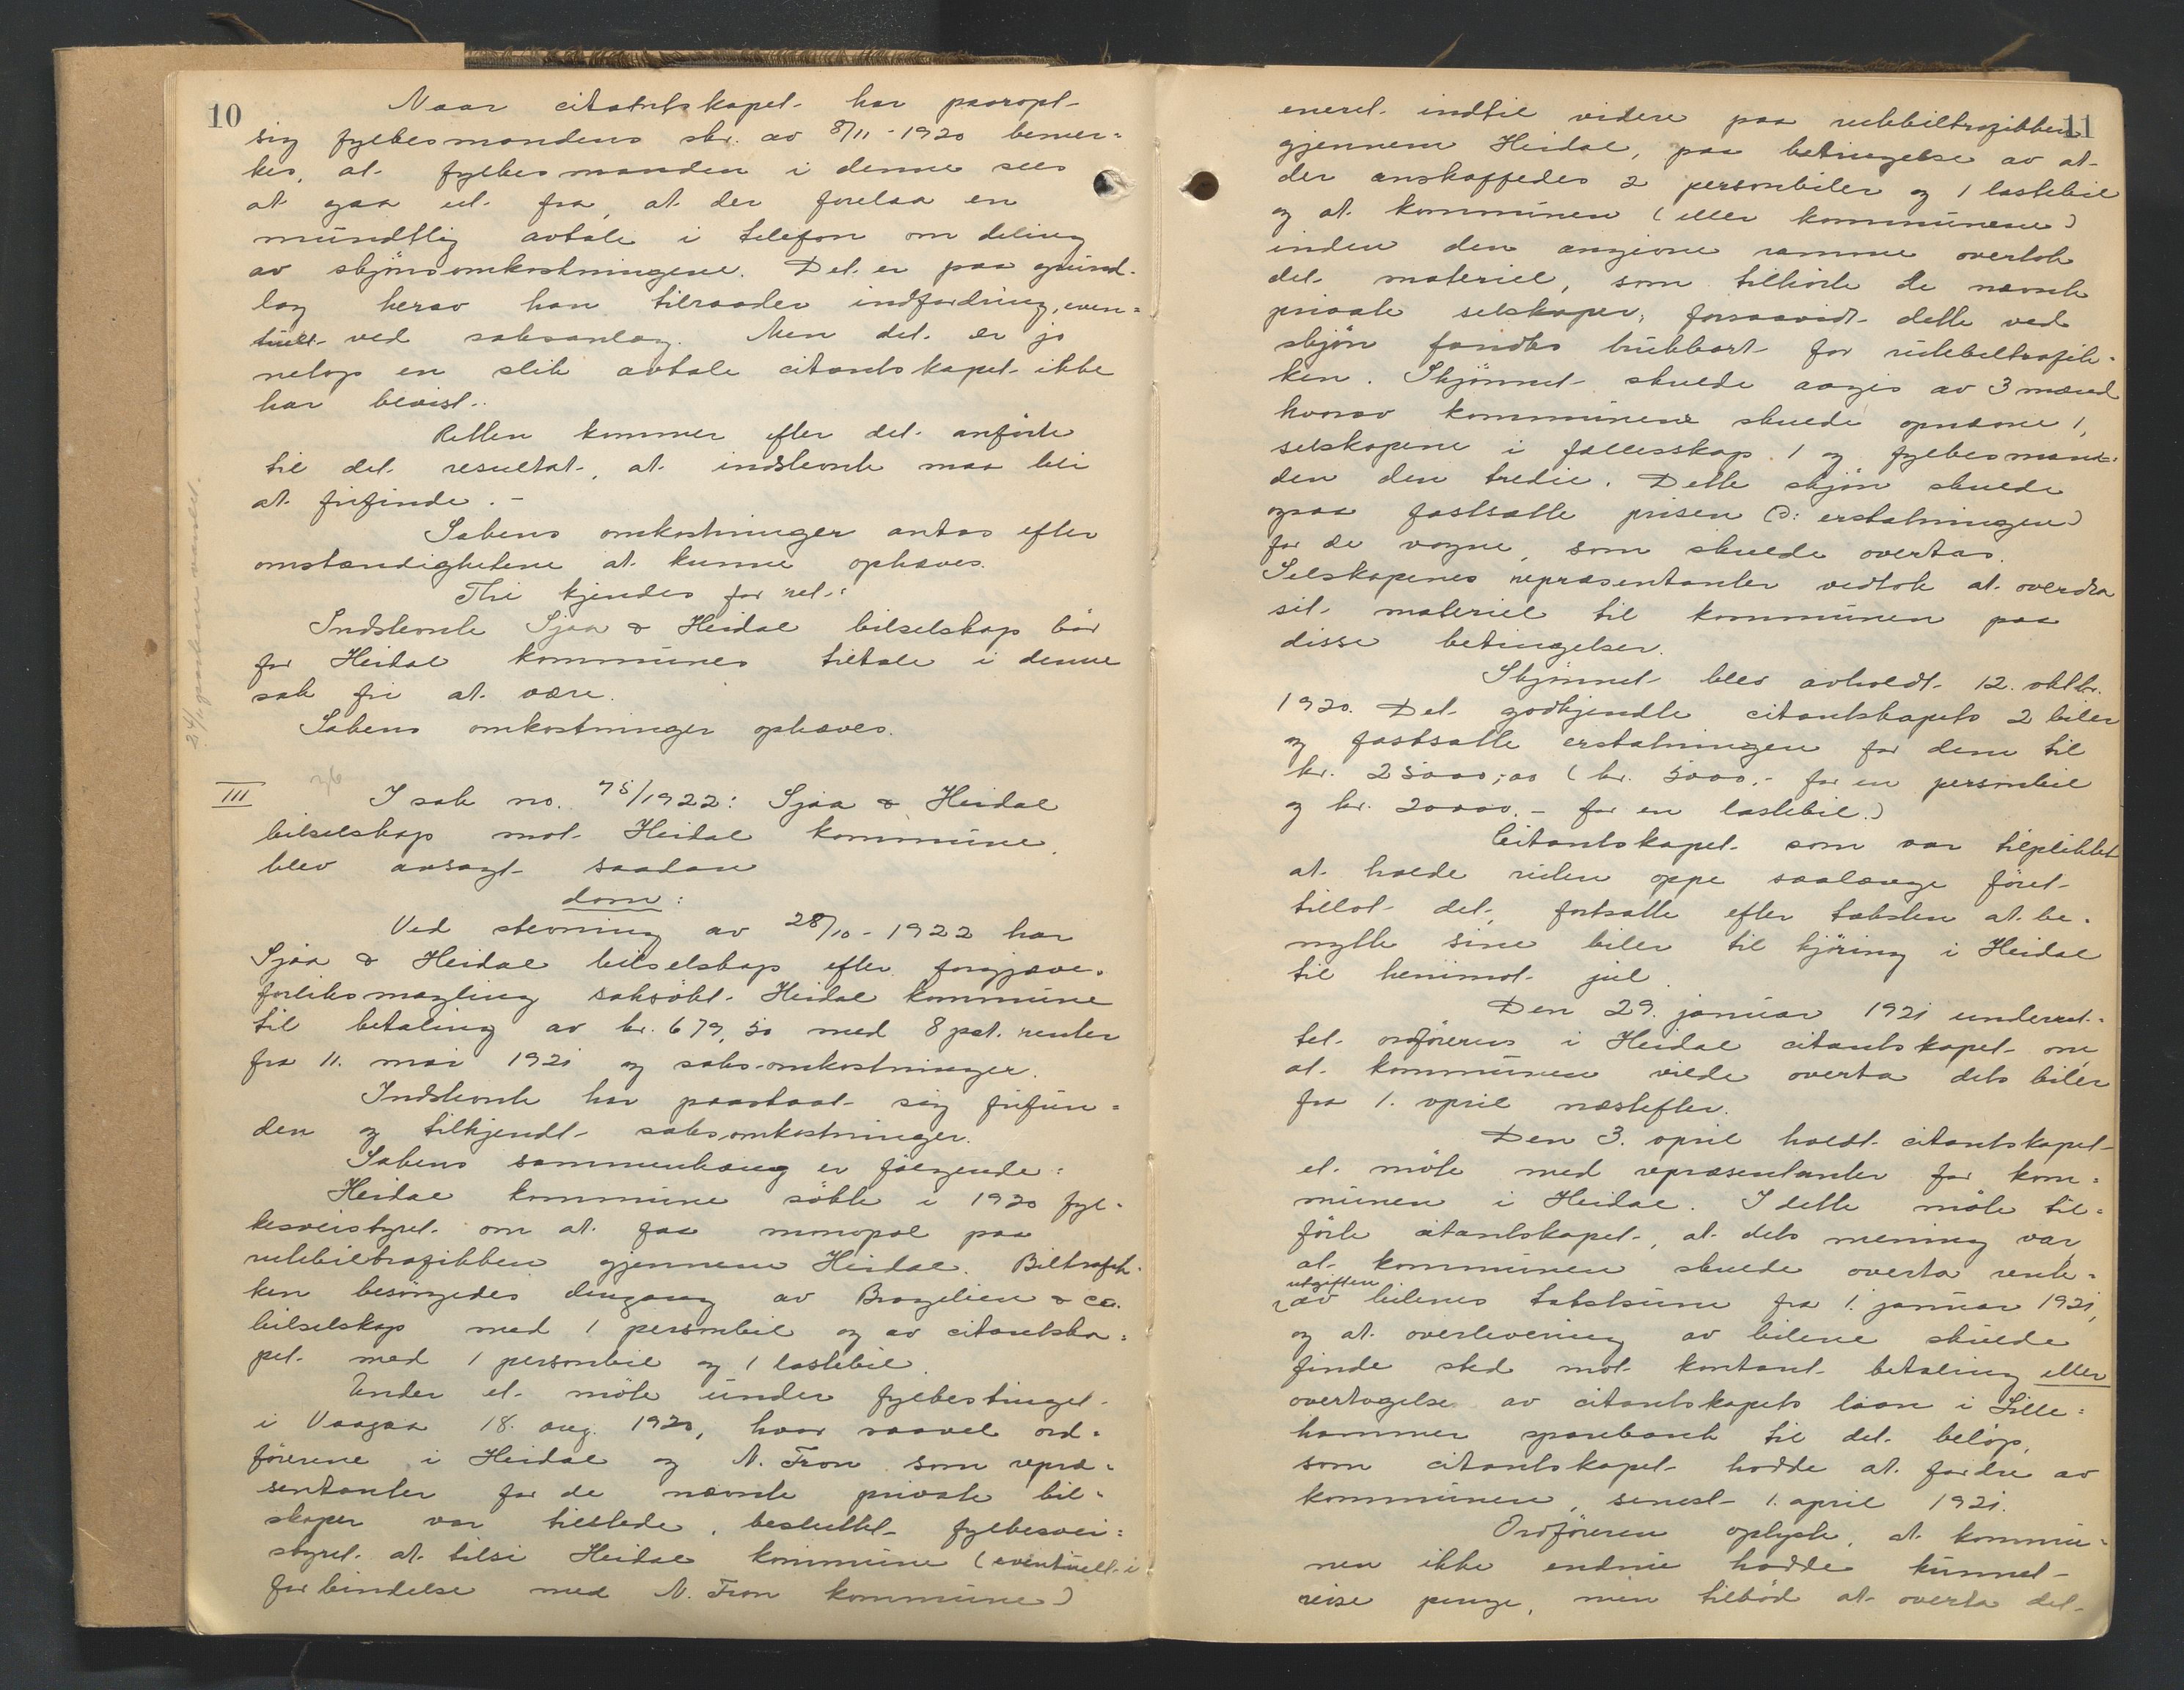 10
Naar citantskapet har paaropt
sig fylkesmandens skr. av 8/11-1920 bemer=
kes, at fylkesmanden i denne sees
at gaa ut fra, at der forelaa en
mundtlig avtale i telefon om deling
av skjönsomkostningene. Det er paa grund-
lag herav han tilraader indfordring, even=
tuelt ved saksanlag. Men det er jo
netop en slik avtale citantskapet ikke
har bevist.
Retten kommer efter det anförte
til det resultat, at indstevnte maa bli
at frifinde. -
Sakens omkostninger antas efter
omstændighetene at kunne ophæves.
Thi kjendes for ret:
Indstevnte Sjaa & Heidal bilselskap bör
for Heidal kommunes tiltale i denne
sak fri at være.
Sakens omkostninger ophæves.
III
I sak no. 75/1922: Sjaa & Heidal
bilselskap mot Heidal kommune,
blev avsagt saadan
dom:
Ved stevning av 28/10-1922 har
Sjaa & Heidal bilselskap efter forgjæves
forliksmægling saksökt Heidal kommune
til betaling av kr. 679,50 med 8 pct. renter
fra 11. mai 1921 og saks-omkostninger.
Indstevnte har paastaat sig frifun=
den og tilkjendt saksomkostninger.
Sakens sammenhæng er fölgende:
Heidal kommune sökte i 1920 fyl=
kesveistyret om at faa monopol paa
rutebiltrafikken gjennem Heidal. Biltrafik-
ken besörgedes dengang av Brazelien & co.
bilselskap med 1 personbil og av citantska=
pet med 1 personbil og 1 lastebil.
Under et möte under fylkestinget
i Vaagaa 18. aug. 1920, hvor saavel ord=
förerne i Heidal og N. Fron som repræ=
sentanter for de nævnte private bil=
skaper var tilstede, besluttet fylkesvei=
styret at tilsi Heidal kommune (eventuelt i
forbindelse med N. Fron kommune)
11
eneret indtil videre paa rutebiltrafikken
gjennem Heidal, paa betingelse av at
der anskaffedes 2 personbiler og 1 lastebil
og at kommunen (eller kommunene)
inden den angivne ramme overtok
det materiel, som tilhörte de nævnte
private selskaper, forsaavidt dette ved
skjön fandtes brukbart for rutebiltrafik=
ken. Skjönnet skulde avgis av 3 mænd
hvorav kommunene skulde opnævne 1,
selskapene i fællesskap 1 og fylkesmand=
den den tredie. Dette skjön skulde
ogsaa fastsætte prisen (ɔ: erstatningen)
for de vogne, som skulde overtas.
Selskapenes repræsentanter vedtok at overdra
sit materiel til kommunen paa
disse betingelser.
Skjönnet blev avholdt 12. oktbr.
1920. Det godkjendte citantskapets 2 biler
og fastsatte erstatningen for dem til
kr. 25000,00 (kr. 5000,- for en personbil
og kr. 20000.- for en lastebil.)
Citantskapet som var tilpliktet
at holde ruten oppe saalænge föret
tillot det, fortsatte efter taksten at be=
nytte sine biler til kjöring i Heidal
til henimot jul.
Den 29. januar 1921 underret=
tet ordföreren i Heidal citantskapet om
at kommunen vilde overta dets biler
fra 1. april næstefter.
Den 3. april holdt citantskapet
et möte med repræsentanter for kom=
munen i Heidal. I dette möte til=
förte citantskapet, at dets mening var,
at kommunen skulde overta rente=
utgiften
av bilenes takstsum fra 1. januar 1921,
og at overlevering av bilene skulde
finde sted mot kontant betaling eller
overtagelse av citantskapets laan i Lille=
hammer sparebank til det belöp,
som citantskapet hadde at fordre av
kommunen, senest 1. april 1921.
Ordföreren oplyste, at kommu=
nen ikke endnu hadde kunnet
reise penge, men tilböd at overta det